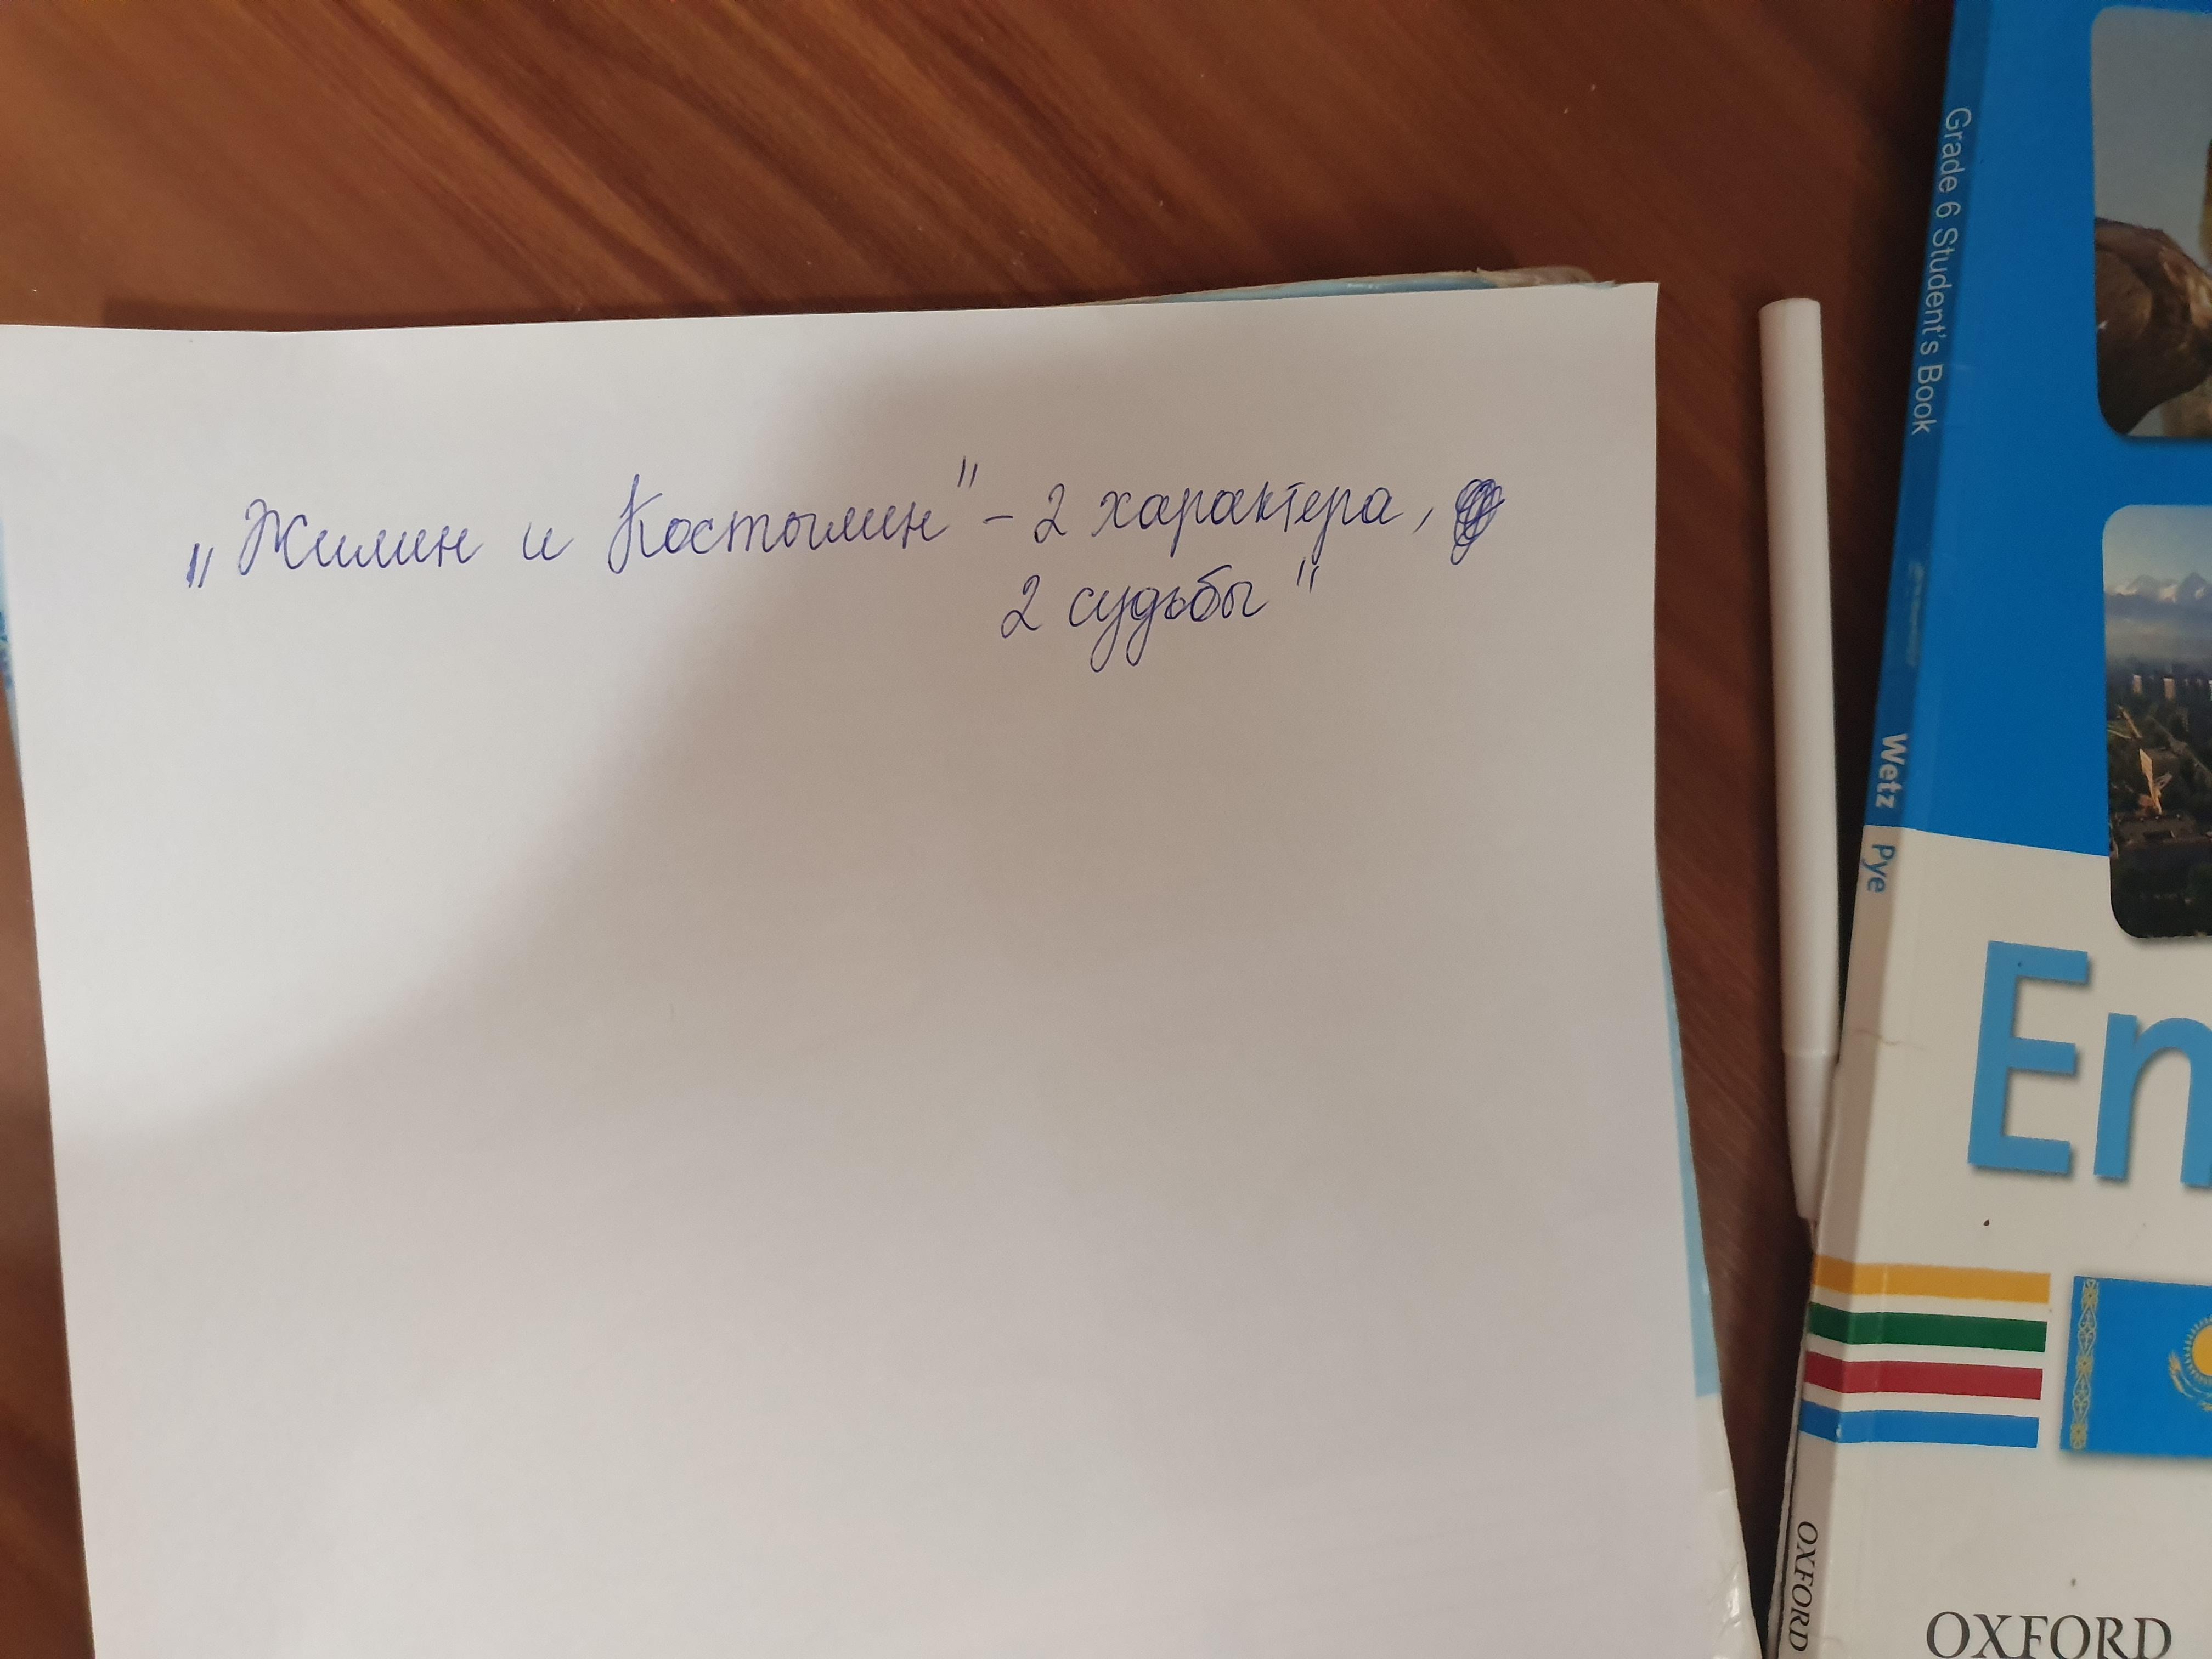 „Жилин и Костылин" – 2 характера,
2 судьбы"
Grade 6 Student's Book
Wetz Pye
En
OXFORD
OXFORD